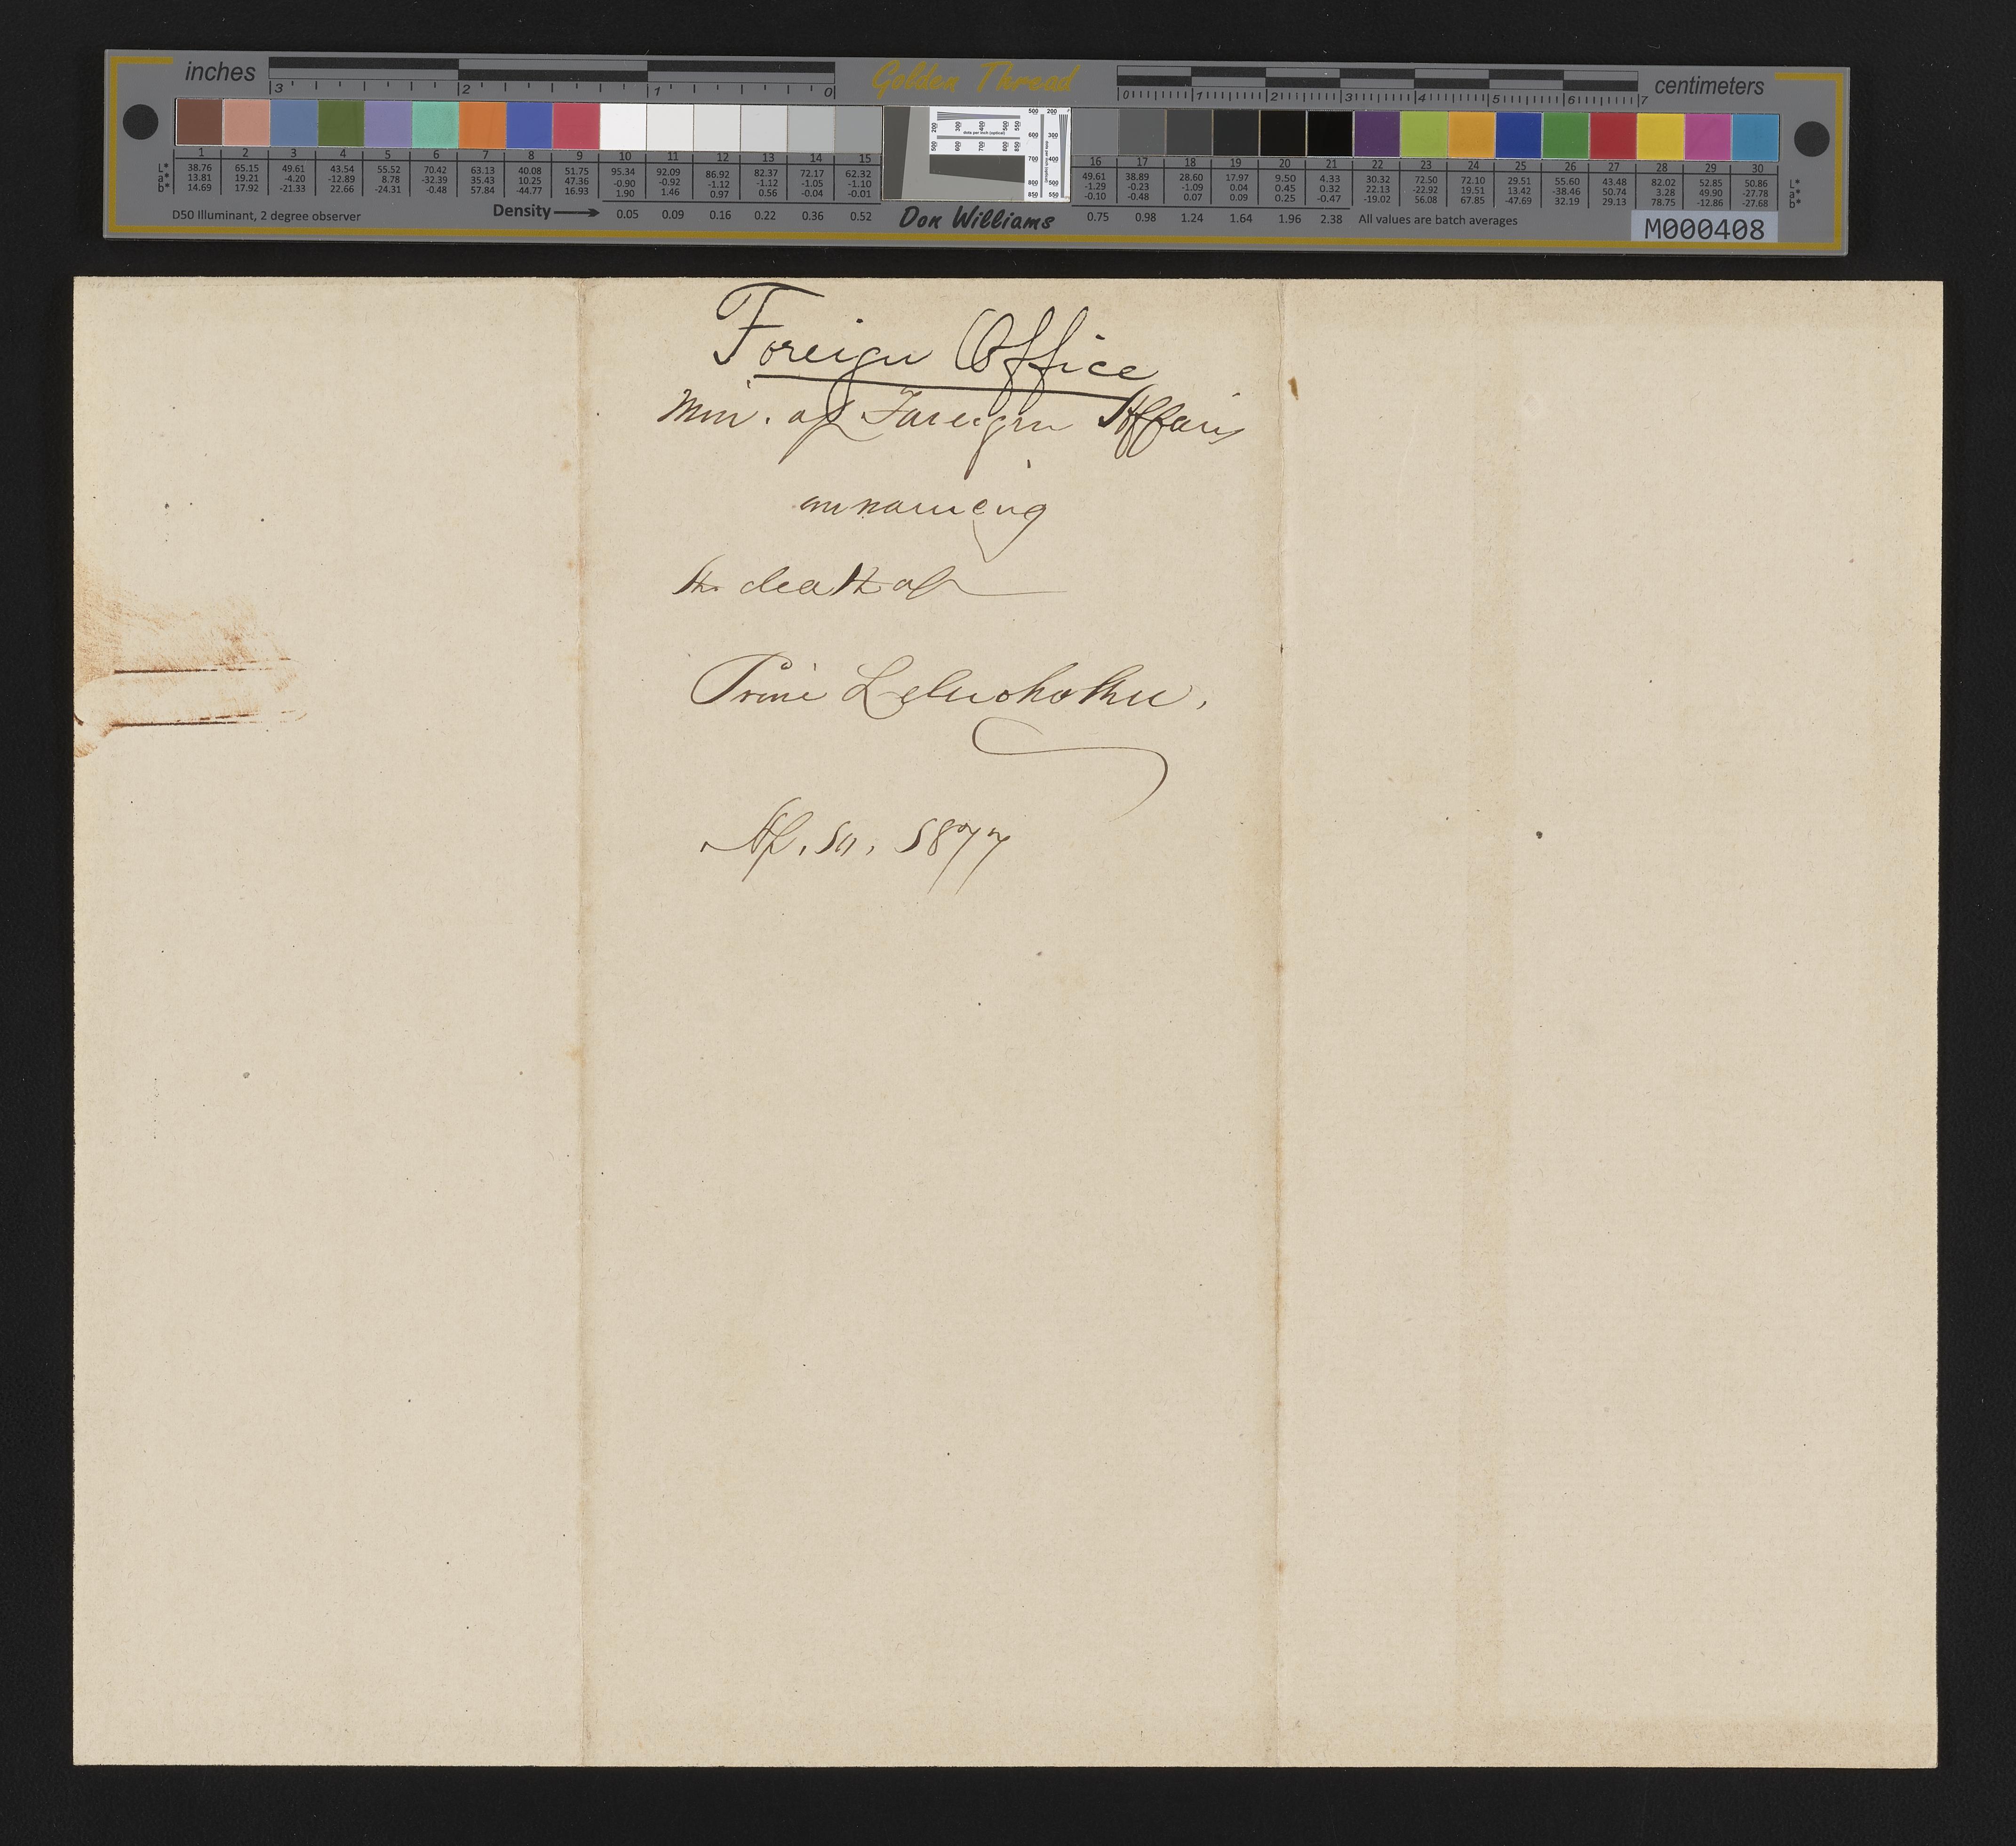 inches 3 2 1 0 Golden Thread 0 1 2 3 4 5 6 7 centimeters
1 2 3 4 5 6 7 8 9 10 11 12 13 14 15 16 17 18 19 20 21 22 23 24 25 26 27 28 29 30
L* 38.76 65.15 49.61 43.54 55.52 70.42 63.13 40.08 51.75 95.34 92.09 86.92 82.37 72.17 62.32 49.61 38.89 28.60 17.97 9.50 4.33 30.32 72.50 72.10 29.51 55.60 43.48 82.02 52.85 50.86 L*
a* 13.81 19.21 -4.20 -12.89 8.78 -32.39 35.43 10.25 47.36 -0.90 -0.92 -1.12 -1.12 -1.05 -1.10 -1.29 -0.23 -1.09 0.04 0.45 0.32 22.13 -22.92 19.51 13.42 -38.46 50.74 3.28 49.90 -27.78 a*
b* 14.69 17.92 -21.33 22.66 -24.31 -0.48 57.84 -44.77 16.93 1.90 1.46 0.97 0.56 -0.04 -0.01 -0.10 -0.48 0.07 0.09 0.25 -0.47 -19.02 56.08 67.85 -47.69 32.19 29.13 78.75 -12.86 -27.68 b*
D50 Illuminant, 2 degree observer Density 0.05 0.09 0.16 0.22 0.36 0.52 Don Williams 0.75 0.98 1.24 1.64 1.96 2.38 All values are batch averages M000408
Foreign Office
Min. of Foreign Affairs
announcing
the death of
Prince Leleiohoku.
Ap. 10, 1877